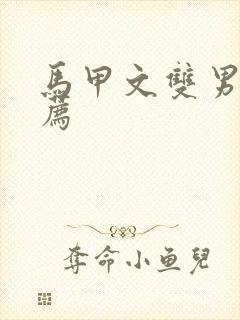 馬甲文雙男
薦
奪命小鱼兒